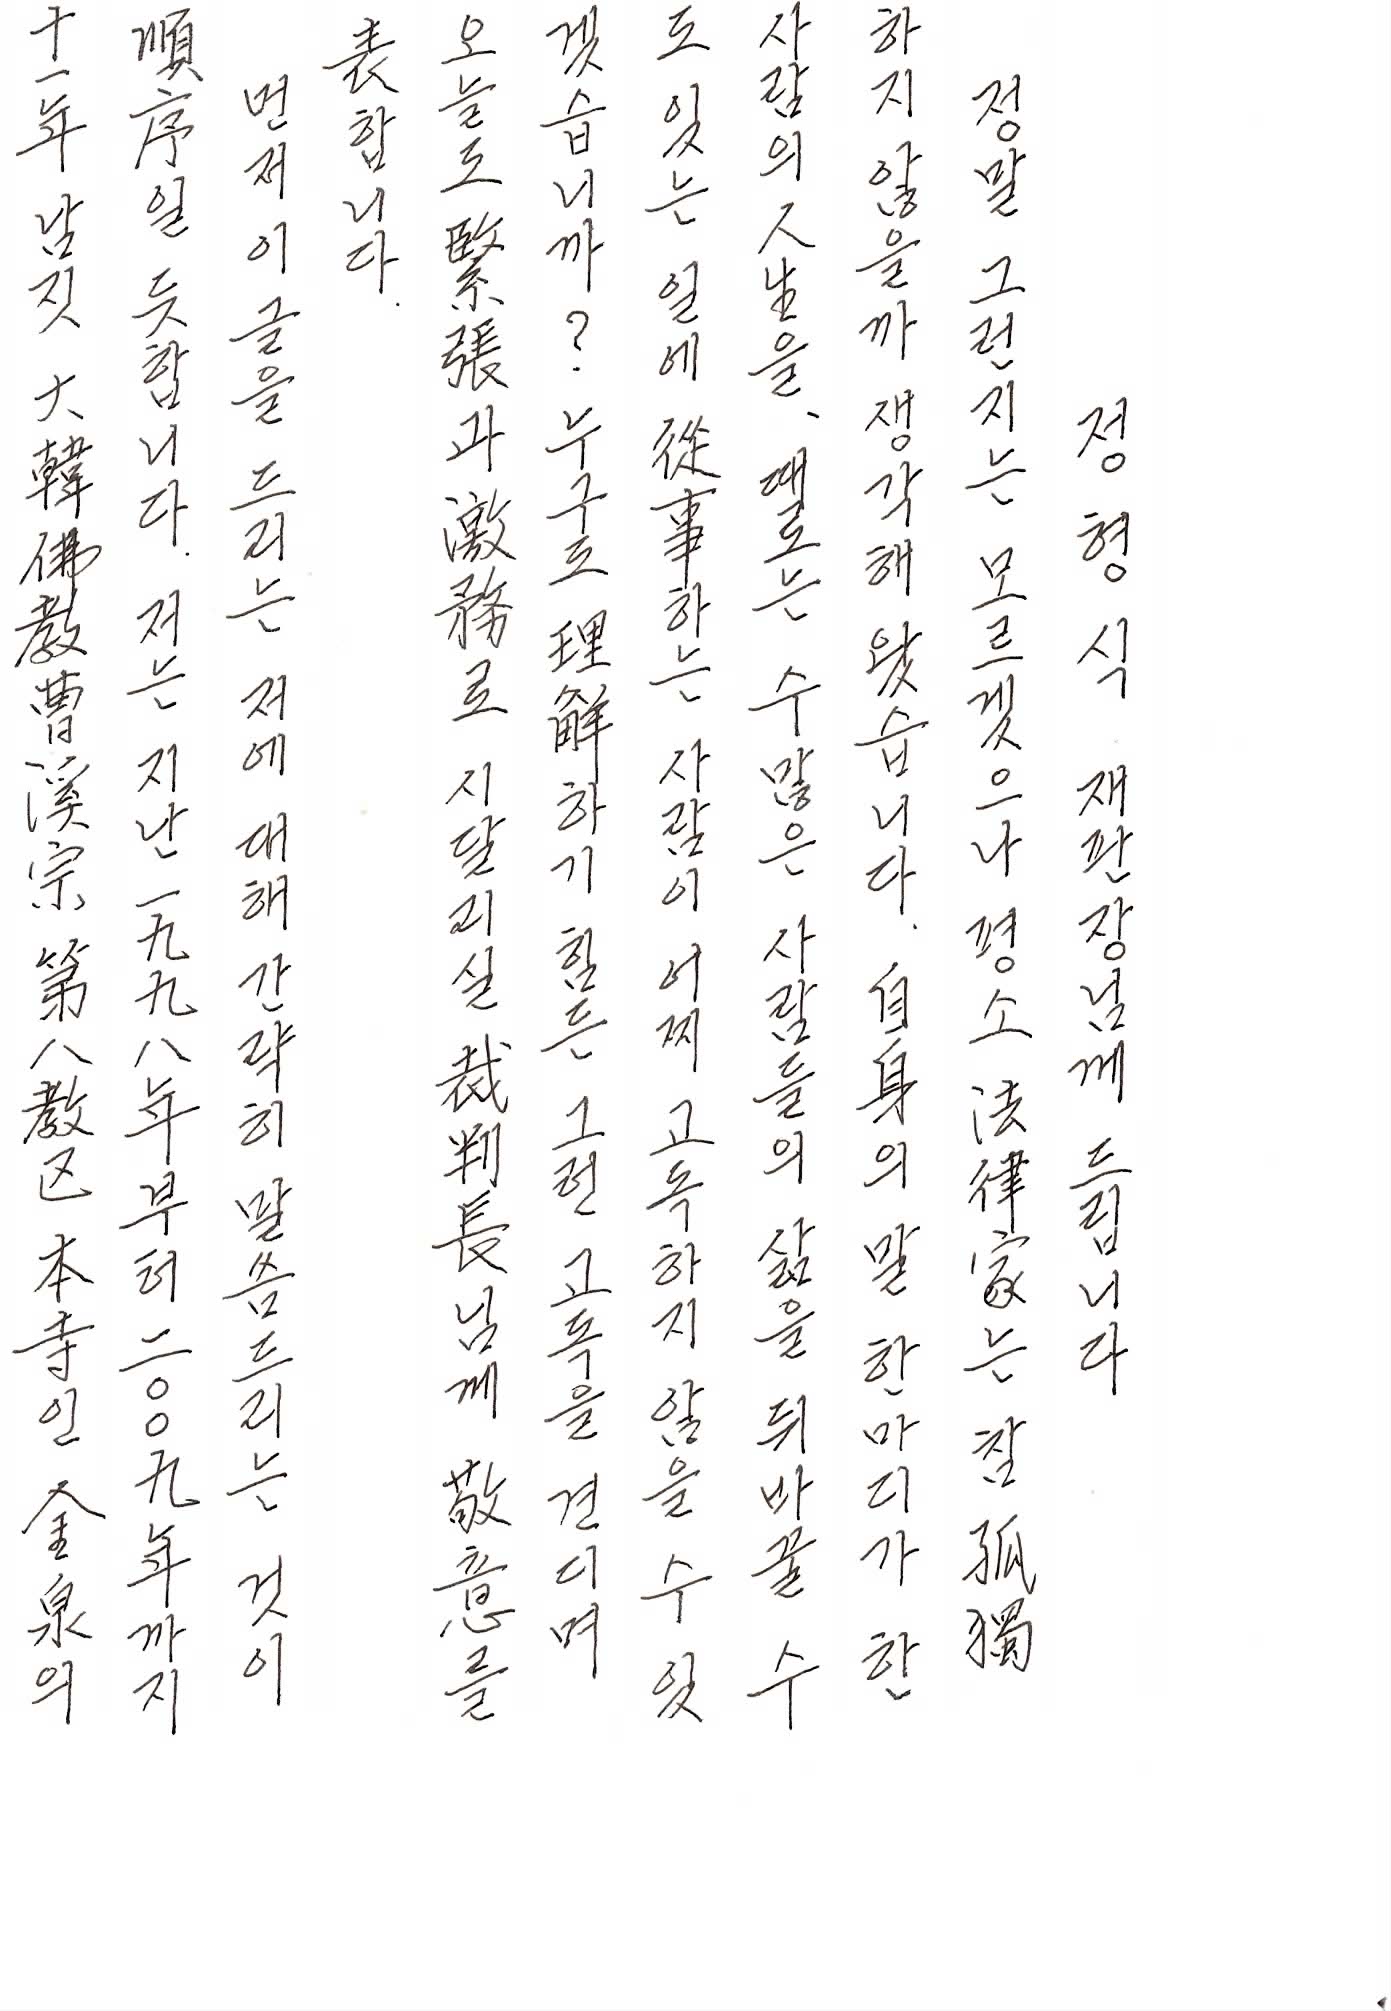 정형식 재판장님께 드립니다
정말 그런지는 모르겟으나 평소 法律家는 참 孤獨
하지 않을까 쟁각해 왔습니다. 自身의 말 한마디가 한
사람의 人生을、때로는 수많은 사람들의 삶을 뒤바꿀 수
도 잇는 일에 從事하는 사람이 어찌 고독하지 않을 수 잇
겟습니까? 누구도 理解하기 힘든 그런 고독을 견디며
오늘도 緊張과 激務로 시달리실 裁判長님께 敬意를
表합니다.
먼저 이 글을 드리는 저에 대해 간략히 말씀드리는 것이
順序일 듯합니다. 저는 지난 一九九八年부터 二○○九年까지
十一年 남짓 大韓佛敎曹溪宗 第八敎区 本寺인 金泉의